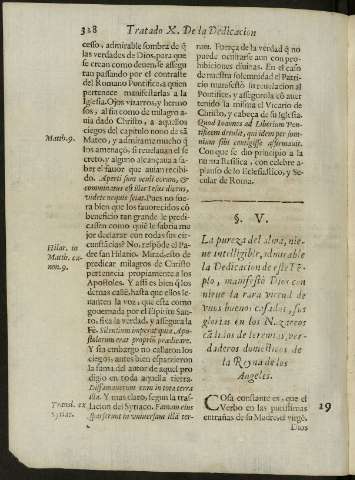 328 Tratado X. De la Dedicacion
cesso, admirable sombra de q̃
las verdades de Dios, para que
se crean como deuen, se assegu
ran passando por el contraste
del Romano Pontifice, a quien
pertenece manifestarlas a la
Iglesia. Ojos vizarros, y hermo
sos, al fin como de milagro a-
uia dado Christo, a aquellos
ciegos del capitulo nono de sã
Matth. 9.
Mateo, y admirame mucho q̃
los amenaçò, si reuelauan el se
creto, y alguno alcançaua a sa-
ber el fauor que auian recibi-
do. Aperti sunt oculi eorum, &
comminatus est illis Iesus dicens,
videte ne quis sciat. Pues no fue-
ra bien que los fauorecidos cõ
beneficio tan grande le predi-
cassen como quiè le sabria me
jor declarar con todas sus cir-
cunstãcias? No, respõde el Pa-
Hilar. in
Matth. ca-
non. 9.
dre san Hilario. Mirad, esto de
predicar milagros de Christo
pertenecia propiamente a los
Apostoles. Y assi es bien q̃ los
demas callẽ, hasta que ellos le-
uanten la voz, que esta como
gouernada por el Espiritu San-
to, fixa la verdad, y assegura la
Fè. Silentium imperatur quia Apo-
stolorum erat proprium praedicare.
Y sin embargo no callaron los
ciegos, antes bien esparzieron
la fama del autor de aquel pro
digio en toda aquella tierra.
Diffamauerunt eum in tota terra
illa. Y mas claro, segun la tras-
Transl. ex
Syriac.
lacion del Syriaco. Famam eius
sparserunt in vniuersam illã ter-
ram. Fuerça de la verdad q̃ no
puede ocultarse aun con pro-
hibiciones diuinas. En el caso
de nuestra solemnidad el Patri
cio manifestò la reuelacion al
Pontifice, y assegurola cõ auer
tenido la misma el Vicario de
Christo, y cabeça de su Iglesia.
Quod Ioannes ad Liberium Pon-
tificem detulit, qui idem per som-
nium sibi contigisse affirmauit.
Con que se dio principio a la
nueua Basilica, con celebre a-
plauso de lo Eclesiastico, y Se-
cular de Roma.
§. V.
La pureza del alma, nie-
ue intelligible, admirable
la Dedicacion de este Tẽ-
plo, manifestò Dios con
nieue la rara virtud de
vnos buenos casados, sus
glorias en los Nazareos
cãdidos de Ieremias, ver-
daderos domesticos de
la Reyna de los
Angeles.
COsa constante es, que el
19
Verbo en las purissimas
entrañas de su Madre, al virgẽ.
Dios